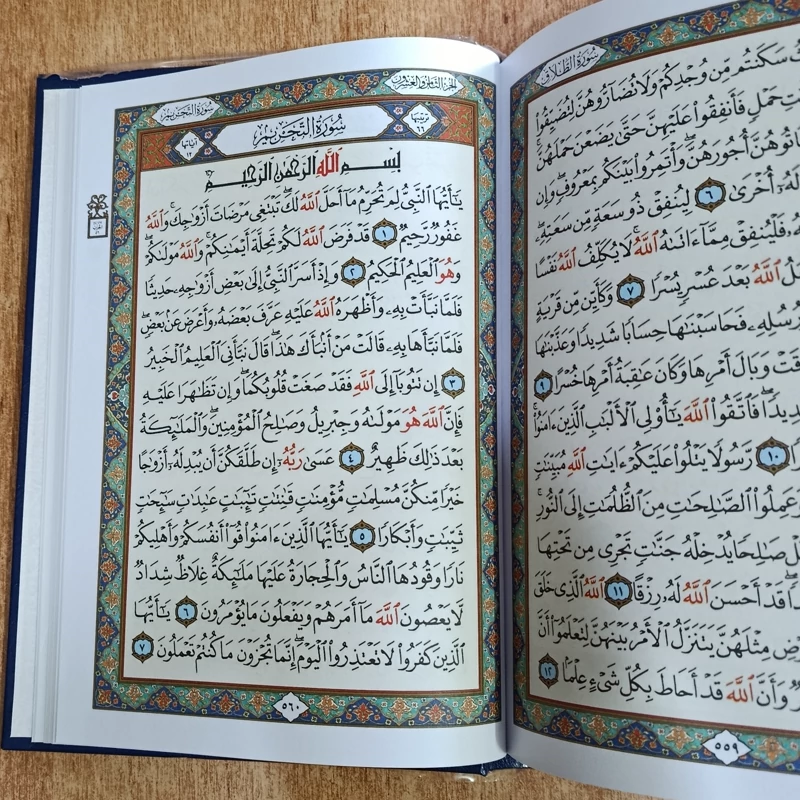 سُورَةُ الطَّلَاقِ
سَكَنتُم مِّن وُجْدِكُمْ وَلَا تُضَآرُّوهُنَّ لِتُضَيِّقُوا۟
حَمْلٍ فَأَنفِقُوا۟ عَلَيْهِنَّ حَتَّىٰ يَضَعْنَ حَمْلَهُنَّ
أُجُورَهُنَّ وَأْتَمِرُوا۟ بَيْنَكُم بِمَعْرُوفٍ وَإِن
لَهُۥٓ أُخْرَىٰ ٦ لِيُنفِقْ ذُو سَعَةٍ مِّن سَعَتِهِۦ
فَلْيُنفِقْ مِمَّآ ءَاتَىٰهُ ٱللَّهُ لَا يُكَلِّفُ ٱللَّهُ نَفْسًا
ٱللَّهُ بَعْدَ عُسْرٍ يُسْرًا ٧ وَكَأَيِّن مِّن قَرْيَةٍ
فَحَاسَبْنَٰهَا حِسَابًا شَدِيدًا وَعَذَّبْنَٰهَا
وَبَالَ أَمْرِهَا وَكَانَ عَٰقِبَةُ أَمْرِهَا خُسْرًا ٩
فَٱتَّقُوا۟ ٱللَّهَ يَٰٓأُو۟لِى ٱلْأَلْبَٰبِ ٱلَّذِينَ ءَامَنُوا۟
١٠ رَّسُولًا يَتْلُوا۟ عَلَيْكُمْ ءَايَٰتِ ٱللَّهِ مُبَيِّنَٰتٍ
وَعَمِلُوا۟ ٱلصَّٰلِحَٰتِ مِنَ ٱلظُّلُمَٰتِ إِلَى ٱلنُّورِ
صَٰلِحًا يُدْخِلْهُ جَنَّٰتٍ تَجْرِى مِن تَحْتِهَا
قَدْ أَحْسَنَ ٱللَّهُ لَهُۥ رِزْقًا ١١ ٱللَّهُ ٱلَّذِى خَلَقَ
مِثْلَهُنَّ يَتَنَزَّلُ ٱلْأَمْرُ بَيْنَهُنَّ لِتَعْلَمُوٓا۟ أَنَّ
وَأَنَّ ٱللَّهَ قَدْ أَحَاطَ بِكُلِّ شَىْءٍ عِلْمًۢا ١٢
٥٥٩
الجزء الثامن والعشرون سُورَةُ التَّحْرِيمِ
ترتيبها ٦٦ سُورَةُ التَّحْرِيمِ آياتها ١٢
بِسْمِ ٱللَّهِ ٱلرَّحْمَٰنِ ٱلرَّحِيمِ
يَٰٓأَيُّهَا ٱلنَّبِىُّ لِمَ تُحَرِّمُ مَآ أَحَلَّ ٱللَّهُ لَكَ تَبْتَغِى مَرْضَاتَ أَزْوَٰجِكَ وَٱللَّهُ
غَفُورٌ رَّحِيمٌ ١ قَدْ فَرَضَ ٱللَّهُ لَكُمْ تَحِلَّةَ أَيْمَٰنِكُمْ وَٱللَّهُ مَوْلَىٰكُمْ
وَهُوَ ٱلْعَلِيمُ ٱلْحَكِيمُ ٢ وَإِذْ أَسَرَّ ٱلنَّبِىُّ إِلَىٰ بَعْضِ أَزْوَٰجِهِۦ حَدِيثًا
فَلَمَّا نَبَّأَتْ بِهِۦ وَأَظْهَرَهُ ٱللَّهُ عَلَيْهِ عَرَّفَ بَعْضَهُۥ وَأَعْرَضَ عَنۢ بَعْضٍ
فَلَمَّا نَبَّأَهَا بِهِۦ قَالَتْ مَنْ أَنۢبَأَكَ هَٰذَا قَالَ نَبَّأَنِىَ ٱلْعَلِيمُ ٱلْخَبِيرُ
٣ إِن تَتُوبَآ إِلَى ٱللَّهِ فَقَدْ صَغَتْ قُلُوبُكُمَا وَإِن تَظَٰهَرَا عَلَيْهِ
فَإِنَّ ٱللَّهَ هُوَ مَوْلَىٰهُ وَجِبْرِيلُ وَصَٰلِحُ ٱلْمُؤْمِنِينَ وَٱلْمَلَٰٓئِكَةُ
بَعْدَ ذَٰلِكَ ظَهِيرٌ ٤ عَسَىٰ رَبُّهُۥٓ إِن طَلَّقَكُنَّ أَن يُبْدِلَهُۥٓ أَزْوَٰجًا
خَيْرًا مِّنكُنَّ مُسْلِمَٰتٍ مُّؤْمِنَٰتٍ قَٰنِتَٰتٍ تَٰٓئِبَٰتٍ عَٰبِدَٰتٍ سَٰٓئِحَٰتٍ
ثَيِّبَٰتٍ وَأَبْكَارًا ٥ يَٰٓأَيُّهَا ٱلَّذِينَ ءَامَنُوا۟ قُوٓا۟ أَنفُسَكُمْ وَأَهْلِيكُمْ
نَارًا وَقُودُهَا ٱلنَّاسُ وَٱلْحِجَارَةُ عَلَيْهَا مَلَٰٓئِكَةٌ غِلَاظٌ شِدَادٌ
لَّا يَعْصُونَ ٱللَّهَ مَآ أَمَرَهُمْ وَيَفْعَلُونَ مَا يُؤْمَرُونَ ٦ يَٰٓأَيُّهَا
ٱلَّذِينَ كَفَرُوا۟ لَا تَعْتَذِرُوا۟ ٱلْيَوْمَ إِنَّمَا تُجْزَوْنَ مَا كُنتُمْ تَعْمَلُونَ ٧
٥٦٠